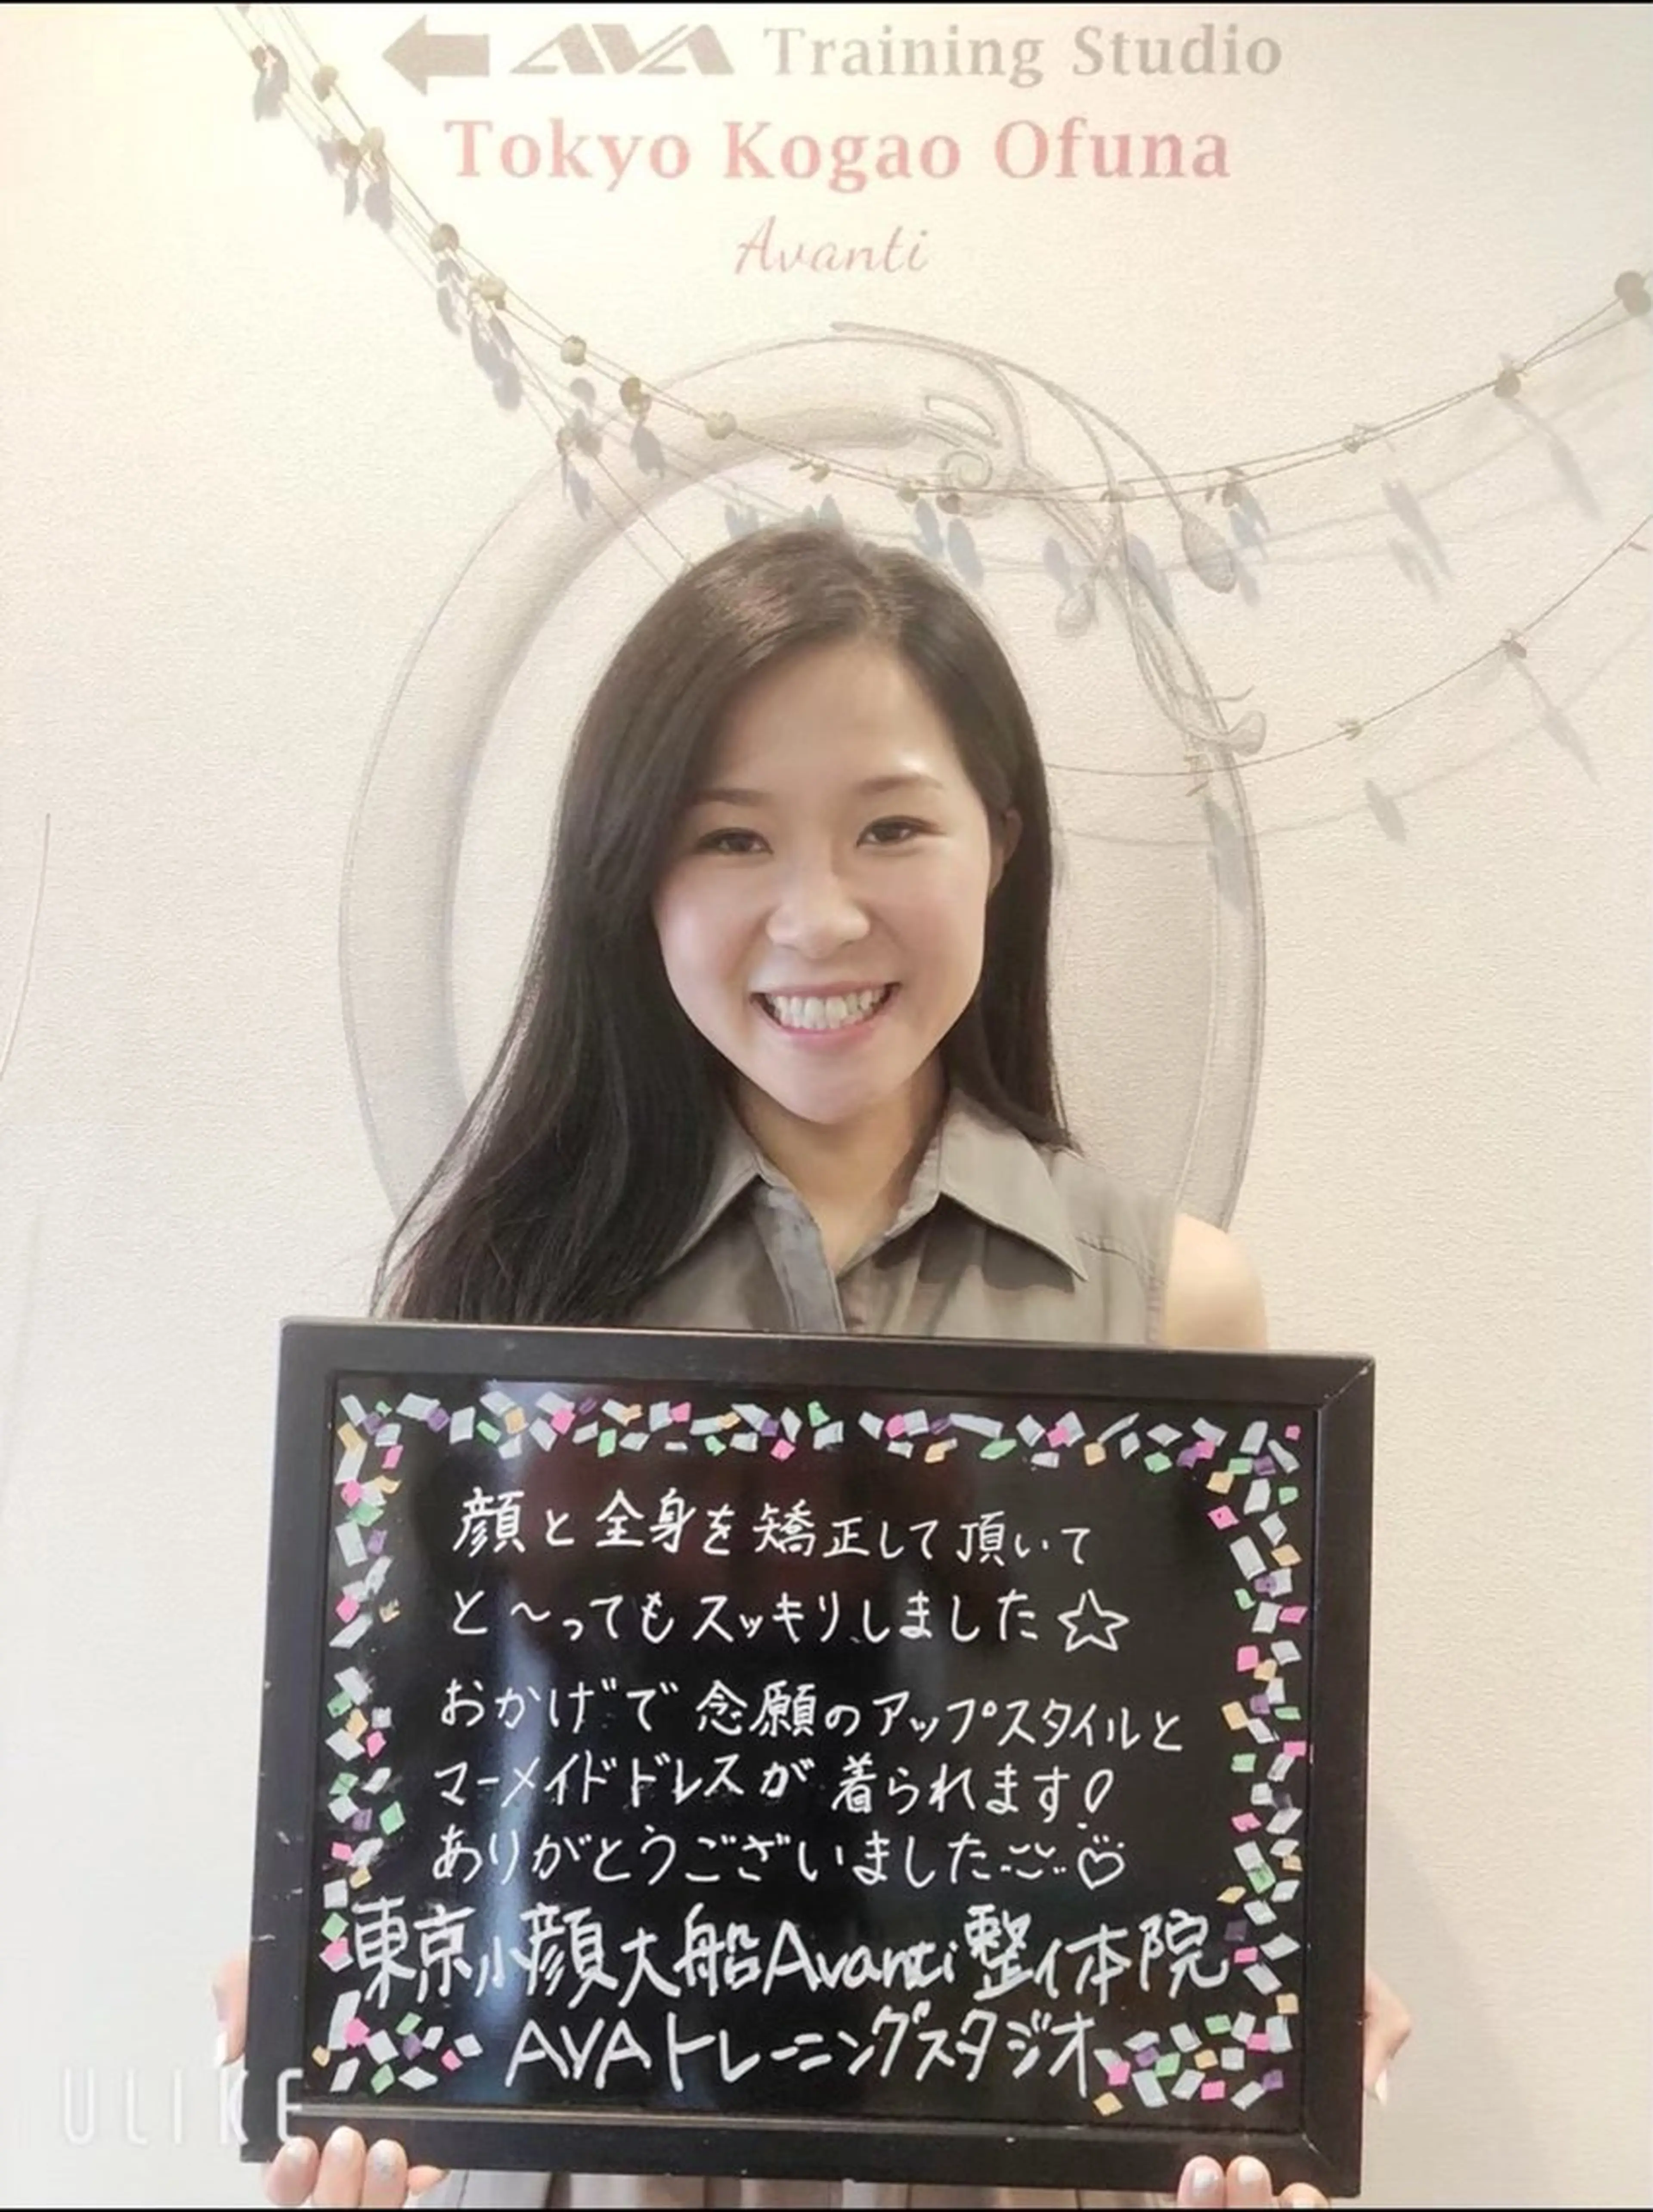 AVA Training Studio
Tokyo Kogao Ofuna
Avanti
顔と全身を矯正して頂いて
と〜ってもスッキリしました☆
おかげで念願のアップスタイルと
マーメイドドレスが着られます!
ありがとうございました♡
東京小顔大船Avanti整体院
AVAトレーニングスタジオ
ULIKE